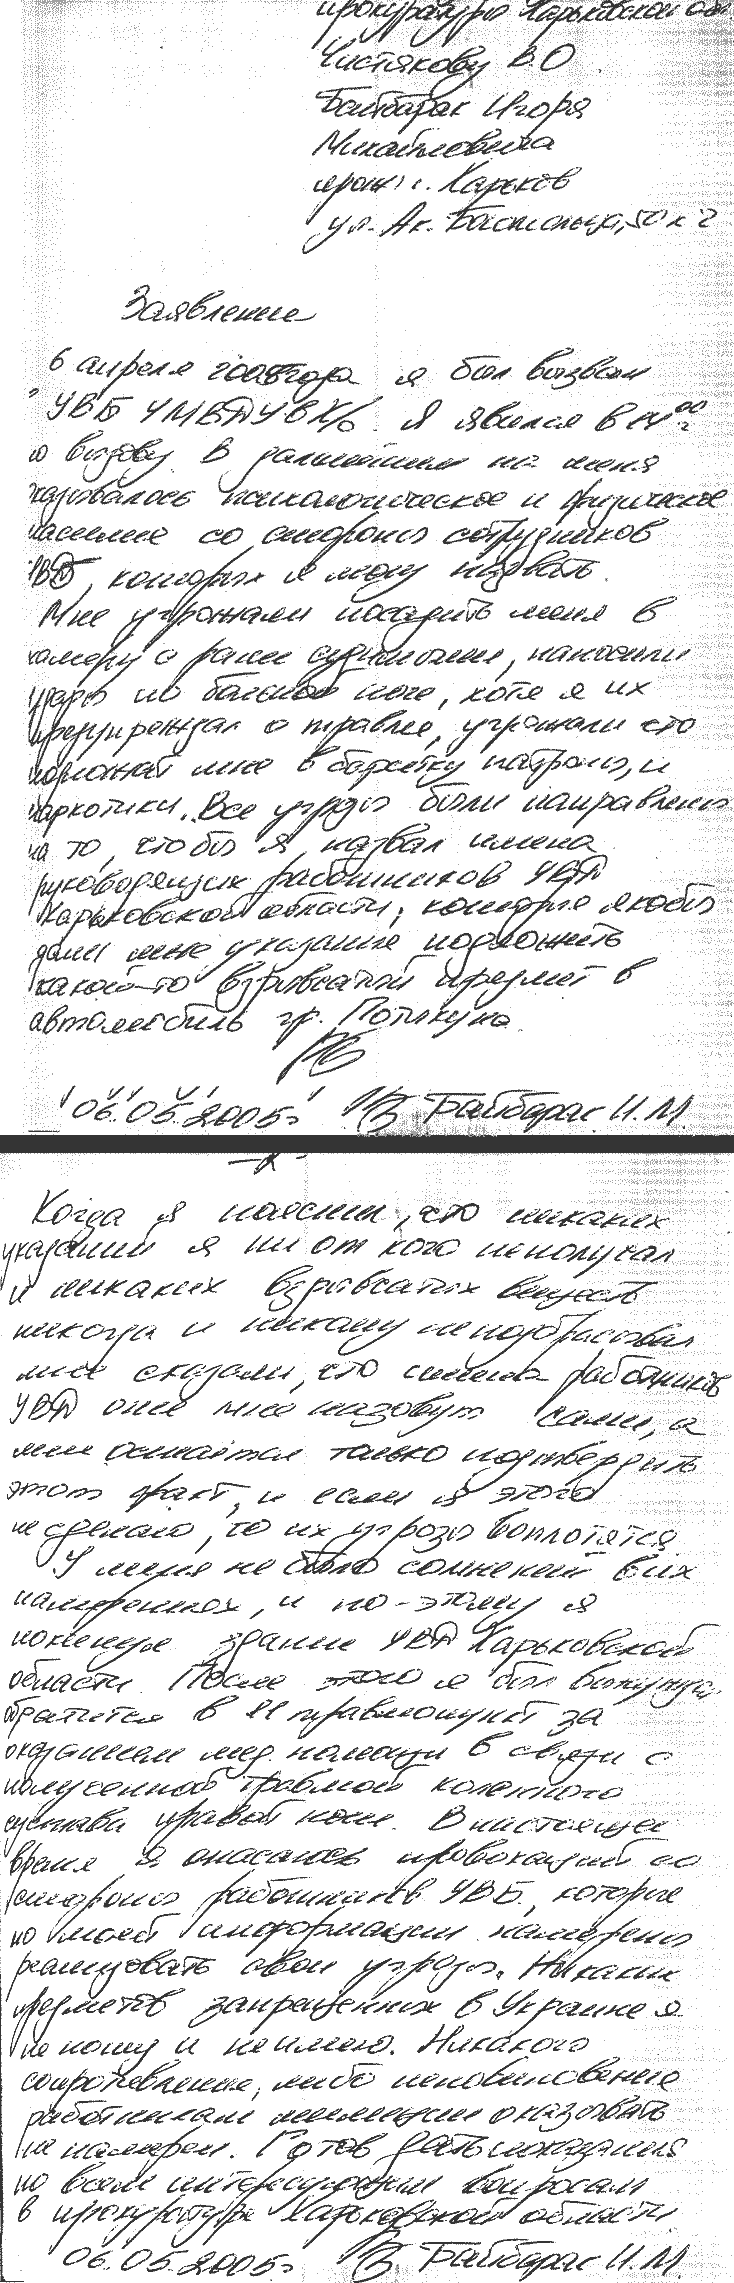 прокуратуры Харьковской обл
Чистякову В.О
Байбарак Игоря
Михайловича
прож: г. Харьков
ул. Ак. 50 к 2
Заявление
6 апреля 2005года я был вызван
УВБ УМВДУ в Х/о. Я явился в 14⁰⁰
по вызову. В дальнейшем на меня
оказывалось психологическое и физическое
насилие со стороны сотрудников
УВБ, которых я могу назвать.
Мне угрожали посадить меня в
камеру с ранее судимыми, наносили
удары по больной ноге, хотя я их
предупреждал о травме, угрожали что
положат мне в барсетку патроны, и
наркотики. Все угрозы были направлены
на то, чтобы я назвал имена
руководящих работников УВД
Харьковской области, которые якобы
дали мне указание подложить
какой-то взрывчатый предмет в
автомобиль гр. Потикуна
06.05.2005г Байбарак И.М.
Когда я пояснил, что никаких
указаний я ни от кого неполучал
и никаких взрывчатых веществ
никогда и никому неподбрасывал
мне сказали, что имена работников
УВД они мне назовут сами, а
мне остаётся только подтвердить
этот факт, и если я этого
не сделаю, то их угрозы воплотятся.
У меня не было сомнений в их
намерениях, и по-этому я
покинул здание УВД Харьковской
области. После этого я был вынужден
обратится в 11 травмопункт за
оказанием мед. помощи в связи с
полученной травмой коленного
сустава правой ноги. В настоящее
время я опасаюсь провокаций со
стороны работников УВБ, которые
по моей информации намерены
реализовать свои угрозы. Никаких
предметов запрещенных в Украине я
не ношу и неимею. Никакого
сопротивления, либо неповиновение
работникам милиции оказывать
не намерен. Готов дать показания
по всем интересующим вопросам
в прокуратуре Харьковской области
06.05.2005г Байбарак И.М.